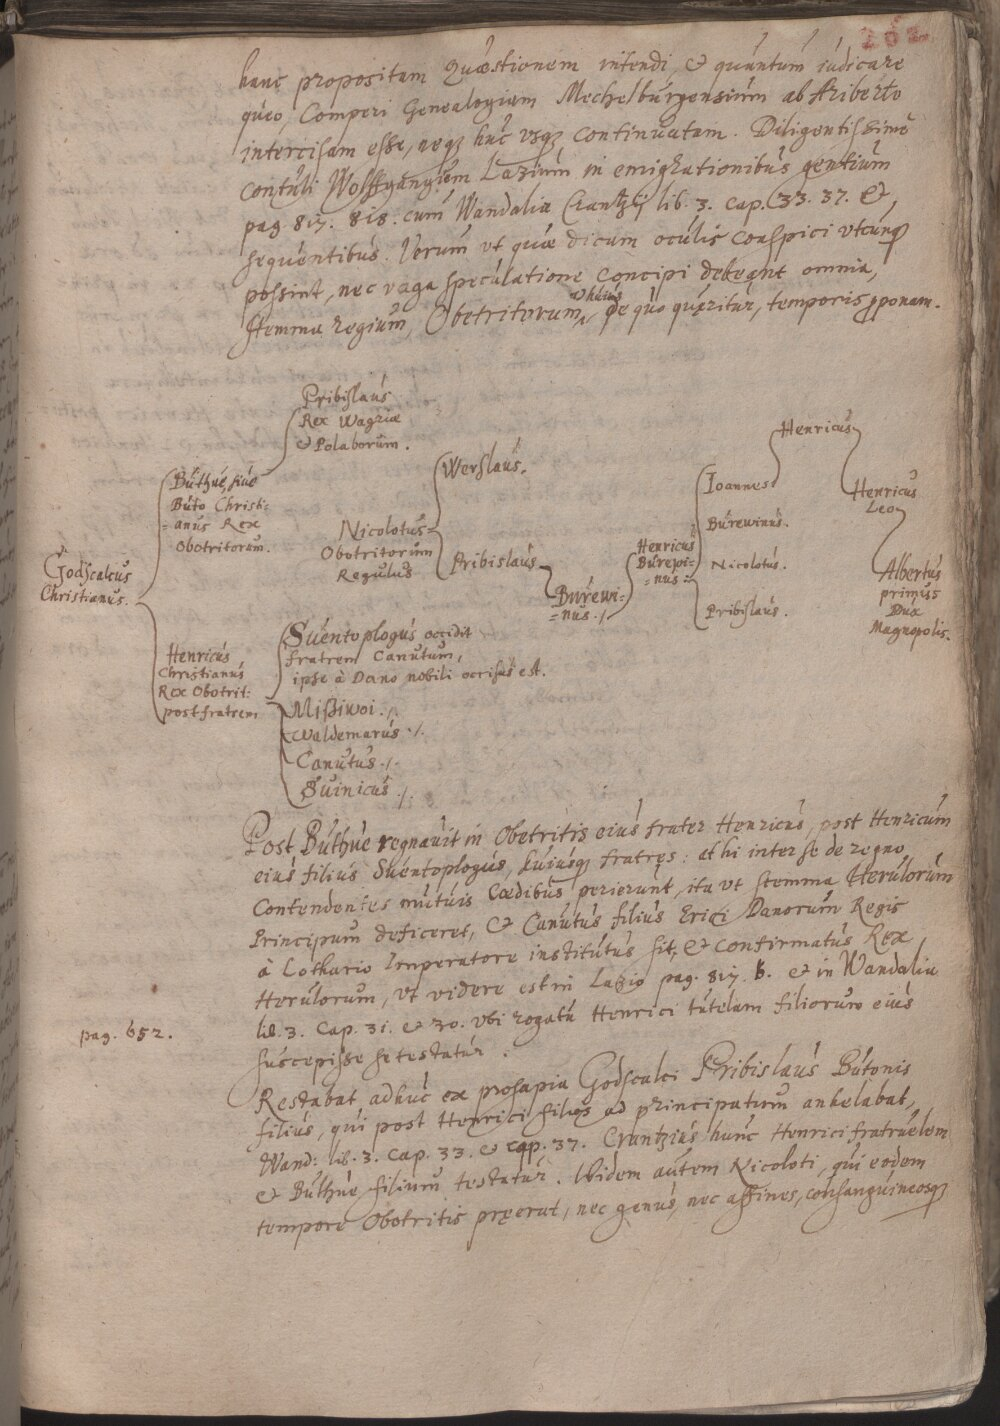 202
hanc propositam quæstionem intendi, & quantum iudicare
queo, Comperi Genealogiam Mechelburgensium ab Ariberto
intercisam esse, neqꝫ huc vsqꝫ continuatam. Diligentissimè
contuli Wolffgangum Lazium in emigrationibus gentium
pag. 817. 818. cum Wandalia Crantzij lib. 3. cap. 33. 37. &
sequentibus. Verum vt quæ dicam oculis conspici vtcunqꝫ
possint, nec vaga speculatione concipi debeant omnia,
huius
Stemma regium, Obetritorum, de quo quæritur, temporis ꝓponam.
Pribislaus
Rex Wagriæ
& Polaborum.
Henricus
Werslaus.
Buthue, siue
Buto Christi-
=anus Rex
Obotritorum.
Ioannes
Henricus
Leo
Nicolotus
Obotritorum
Regulus
Burewinus.
Pribislaus
Henricus
Burewi-
=nus=
Nicolotus.
Godscalcus
Christianus.
Albertus
primus
Dux
Magnopolis.
Burewi=
=nus./
Pribislaus.
Suentoplogus occidit
fratrem Canutum,
ipse à Dano nobili occisus est.
Henricus
Christianus
Rex Obotrit:
post fratrem
Mißiwoi./.
Waldemarus./.
Canutus./.
Suinicus./.
Post Buthue regnauit in Obetritis eius frater Henricus, post Henricum
eius filius Suentoplogus, huiusqꝫ fratres: et hi inter se de regno
Contendentes mutuis Cædibus perierunt, ita vt stemma Herulorum
Principum deficeret, & Canutus filius Erici Danorum Regis
à Lothario Imperatore institutus sit, & confirmatus Rex
Herulorum, vt videre est in Lazio pag. 817. b. & in Wandalia
lib. 3. Cap. 31. & 30. vbi rogatu Henrici tutelam filiorum eius
pag. 652.
suscepisse se testatur.
Restabat adhuc ex prosapia Godscalci Pribislaus Butonis
filius, qui post Henrici filios ad principatum anhelabat,
Wand: lib. 3. Cap. 33. & cap. 37. Crantzius hunc Henrici fratruelem
& Buthue filium testatur. Ibidem autem Nicoloti, qui eodem
tempore Obotritis præerat, nec genus, nec affines, consanguineosqꝫ